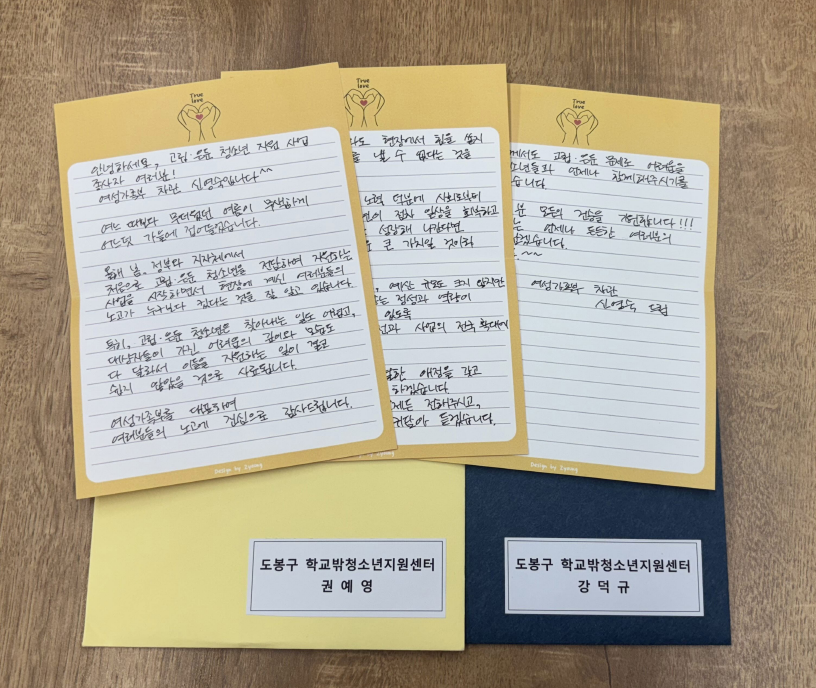 True
love
안녕하세요, 고립·은둔 청소년 지원 사업
종사자 여러분!
여성가족부 차관 신영숙입니다^^
여느 때보다 무더웠던 여름이 무색하게
어느덧 가을에 접어들었습니다.
올해 봄, 정부와 지자체에서
처음으로 고립·은둔 청소년을 전담하여 지원하는
사업을 시작하면서 현장에 계신 여러분들의
노고가 누구보다 컸다는 것을 잘 알고 있습니다.
특히, 고립·은둔 청소년은 찾아내는 일도 어렵고,
대상자들이 가진 어려움의 깊이와 모습도
다 달라서 이들을 지원하는 일이 결코
쉽지 않았을 것으로 사료됩니다.
여성가족부를 대표하여
여러분들의 노고에 진심으로 감사드립니다.
Design by Ziyoung
True
love
현장에서 힘을 쓸지
낼 수 없다는 것을
노력 덕분에 사회로부터
점차 일상을 회복하고
성장해 나간다면
큰 가치일 것이라
예산 규모도 크지 않지만
열정과 역량이
있도록
사업의 전국 확대에
애정을 갖고
하겠습니다.
전해주시고,
귀담아 듣겠습니다.
True
love
고립·은둔 문제로 어려움을
언제나 함께해주시기를
모두의 건승을 기원합니다!!!
언제나 든든한 여러분의
~~
여성가족부 차관
신영숙 드림
Design by Ziyoung
도봉구 학교밖청소년지원센터
권 예 영
도봉구 학교밖청소년지원센터
강 덕 규